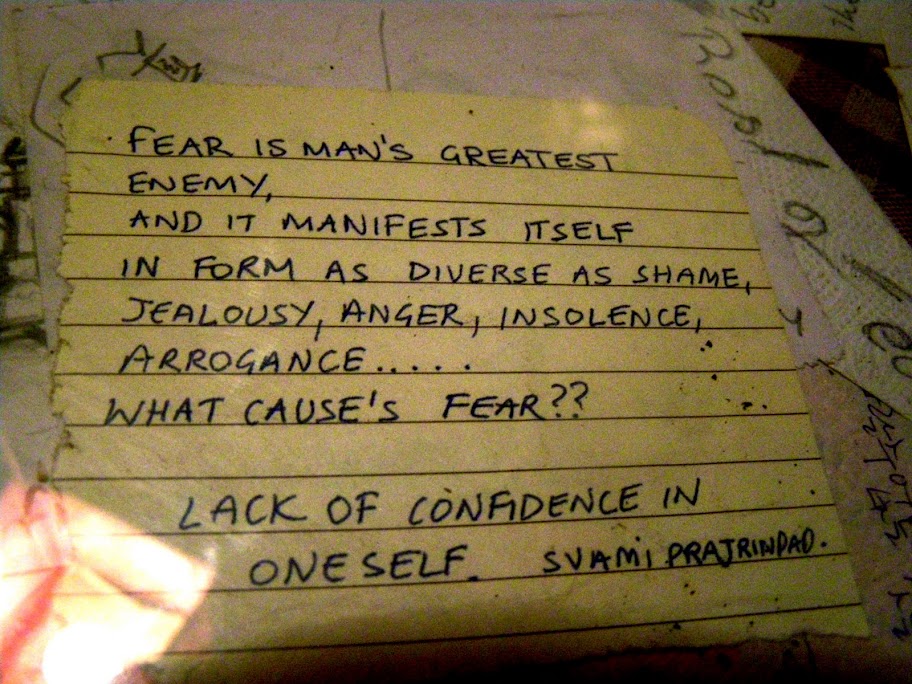 FEAR IS MAN'S GREATEST
ENEMY,
AND IT MANIFESTS ITSELF
IN FORM AS DIVERSE AS SHAME,
JEALOUSY, ANGER, INSOLENCE,
ARROGANCE.....
WHAT CAUSE'S FEAR??
LACK OF CONFIDENCE IN
ONESELF. SVAMI PRAJRINDAD.